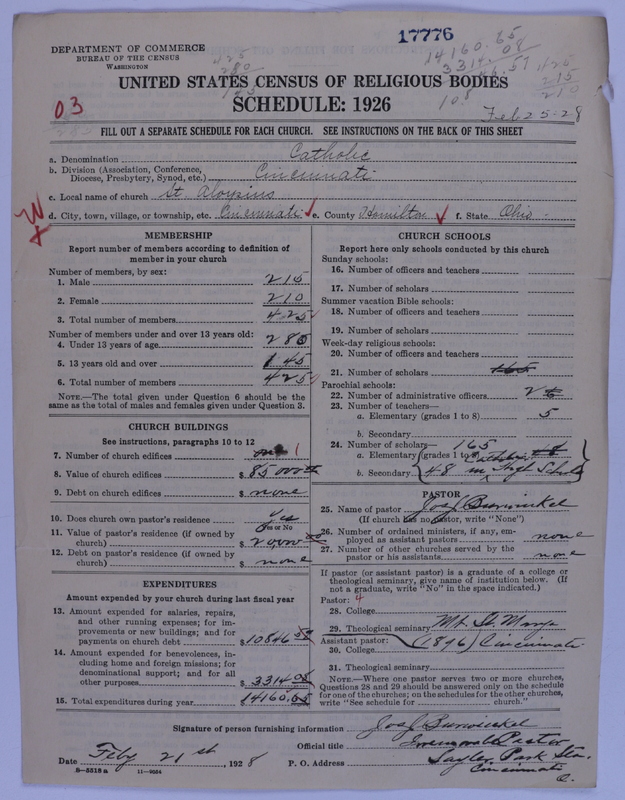 17776
DEPARTMENT OF COMMERCE
BUREAU OF THE CENSUS
WASHINGTON
425
280
14160.65
3314 08
10846.57
425
215
210
UNITED STATES CENSUS OF RELIGIOUS BODIES
SCHEDULE: 1926
03
Feb 25-28
FILL OUT A SEPARATE SCHEDULE FOR EACH CHURCH. SEE INSTRUCTIONS ON THE BACK OF THIS SHEET
a. Denomination Catholic
b. Division (Association, Conference, Diocese, Presbytery, Synod, etc.) Cincinnati
c. Local name of church St Aloysius
d. City, town, village, or township, etc. Cincinnati e. County Hamilton f. State Ohio
MEMBERSHIP
Report number of members according to definition of
member in your church
Number of members, by sex:
1. Male 215
2. Female 210
3. Total number of members 425
Number of members under and over 13 years old:
4. Under 13 years of age 280
5. 13 years old and over 145
6. Total number of members 425
NOTE.—The total given under Question 6 should be
the same as the total of males and females given under Question 3.
CHURCH BUILDINGS
See instructions, paragraphs 10 to 12
7. Number of church edifices one 1
8. Value of church edifices $ 85000
9. Debt on church edifices $ none
10. Does church own pastor's residence Yes
Yes or No
11. Value of pastor's residence (if owned by
church) $ 20,000 00
12. Debt on pastor's residence (if owned by
church) $ none
EXPENDITURES
Amount expended by your church during last fiscal year
13. Amount expended for salaries, repairs,
and other running expenses; for im-
provements or new buildings; and for
payments on church debt $ 10846 57
14. Amount expended for benevolences, in-
cluding home and foreign missions; for
denominational support; and for all
other purposes $ 3314 08
15. Total expenditures during year $ 14160.65
CHURCH SCHOOLS
Report here only schools conducted by this church
Sunday schools:
16. Number of officers and teachers
17. Number of scholars
Summer vacation Bible schools:
18. Number of officers and teachers
19. Number of scholars
Week-day religious schools:
20. Number of officers and teachers
21. Number of scholars 165
Parochial schools:
22. Number of administrative officers 2
23. Number of teachers—
a. Elementary (grades 1 to 8) 5
b. Secondary
24. Number of scholars— 165
a. Elementary (grades 1 to 8) 48
b. Secondary 48 in Catholic High Schols
PASTOR
25. Name of pastor Jos J Burwinkel
(If church has no pastor, write "None")
26. Number of ordained ministers, if any, em-
ployed as assistant pastors none
27. Number of other churches served by the
pastor or his assistants none
If pastor (or assistant pastor) is a graduate of a college or
theological seminary, give name of institution below. (If
not a graduate, write "No" in the space indicated.)
Pastor: 4
28. College
29. Theological seminary Mt. St. Marys
Assistant pastor: (1896) Cincinnati
30. College
31. Theological seminary
NOTE.—Where one pastor serves two or more churches,
Questions 28 and 29 should be answered only on the schedule
for one of the churches; on the schedules for the other churches,
write "See schedule for church."
Signature of person furnishing information Jos J Burwinkel
Official title Irremovable Pastor
Date Feby 21st, 1928 P. O. Address Sayler Park Sta.
Cincinnati
O.
8—5518 a 11—9264